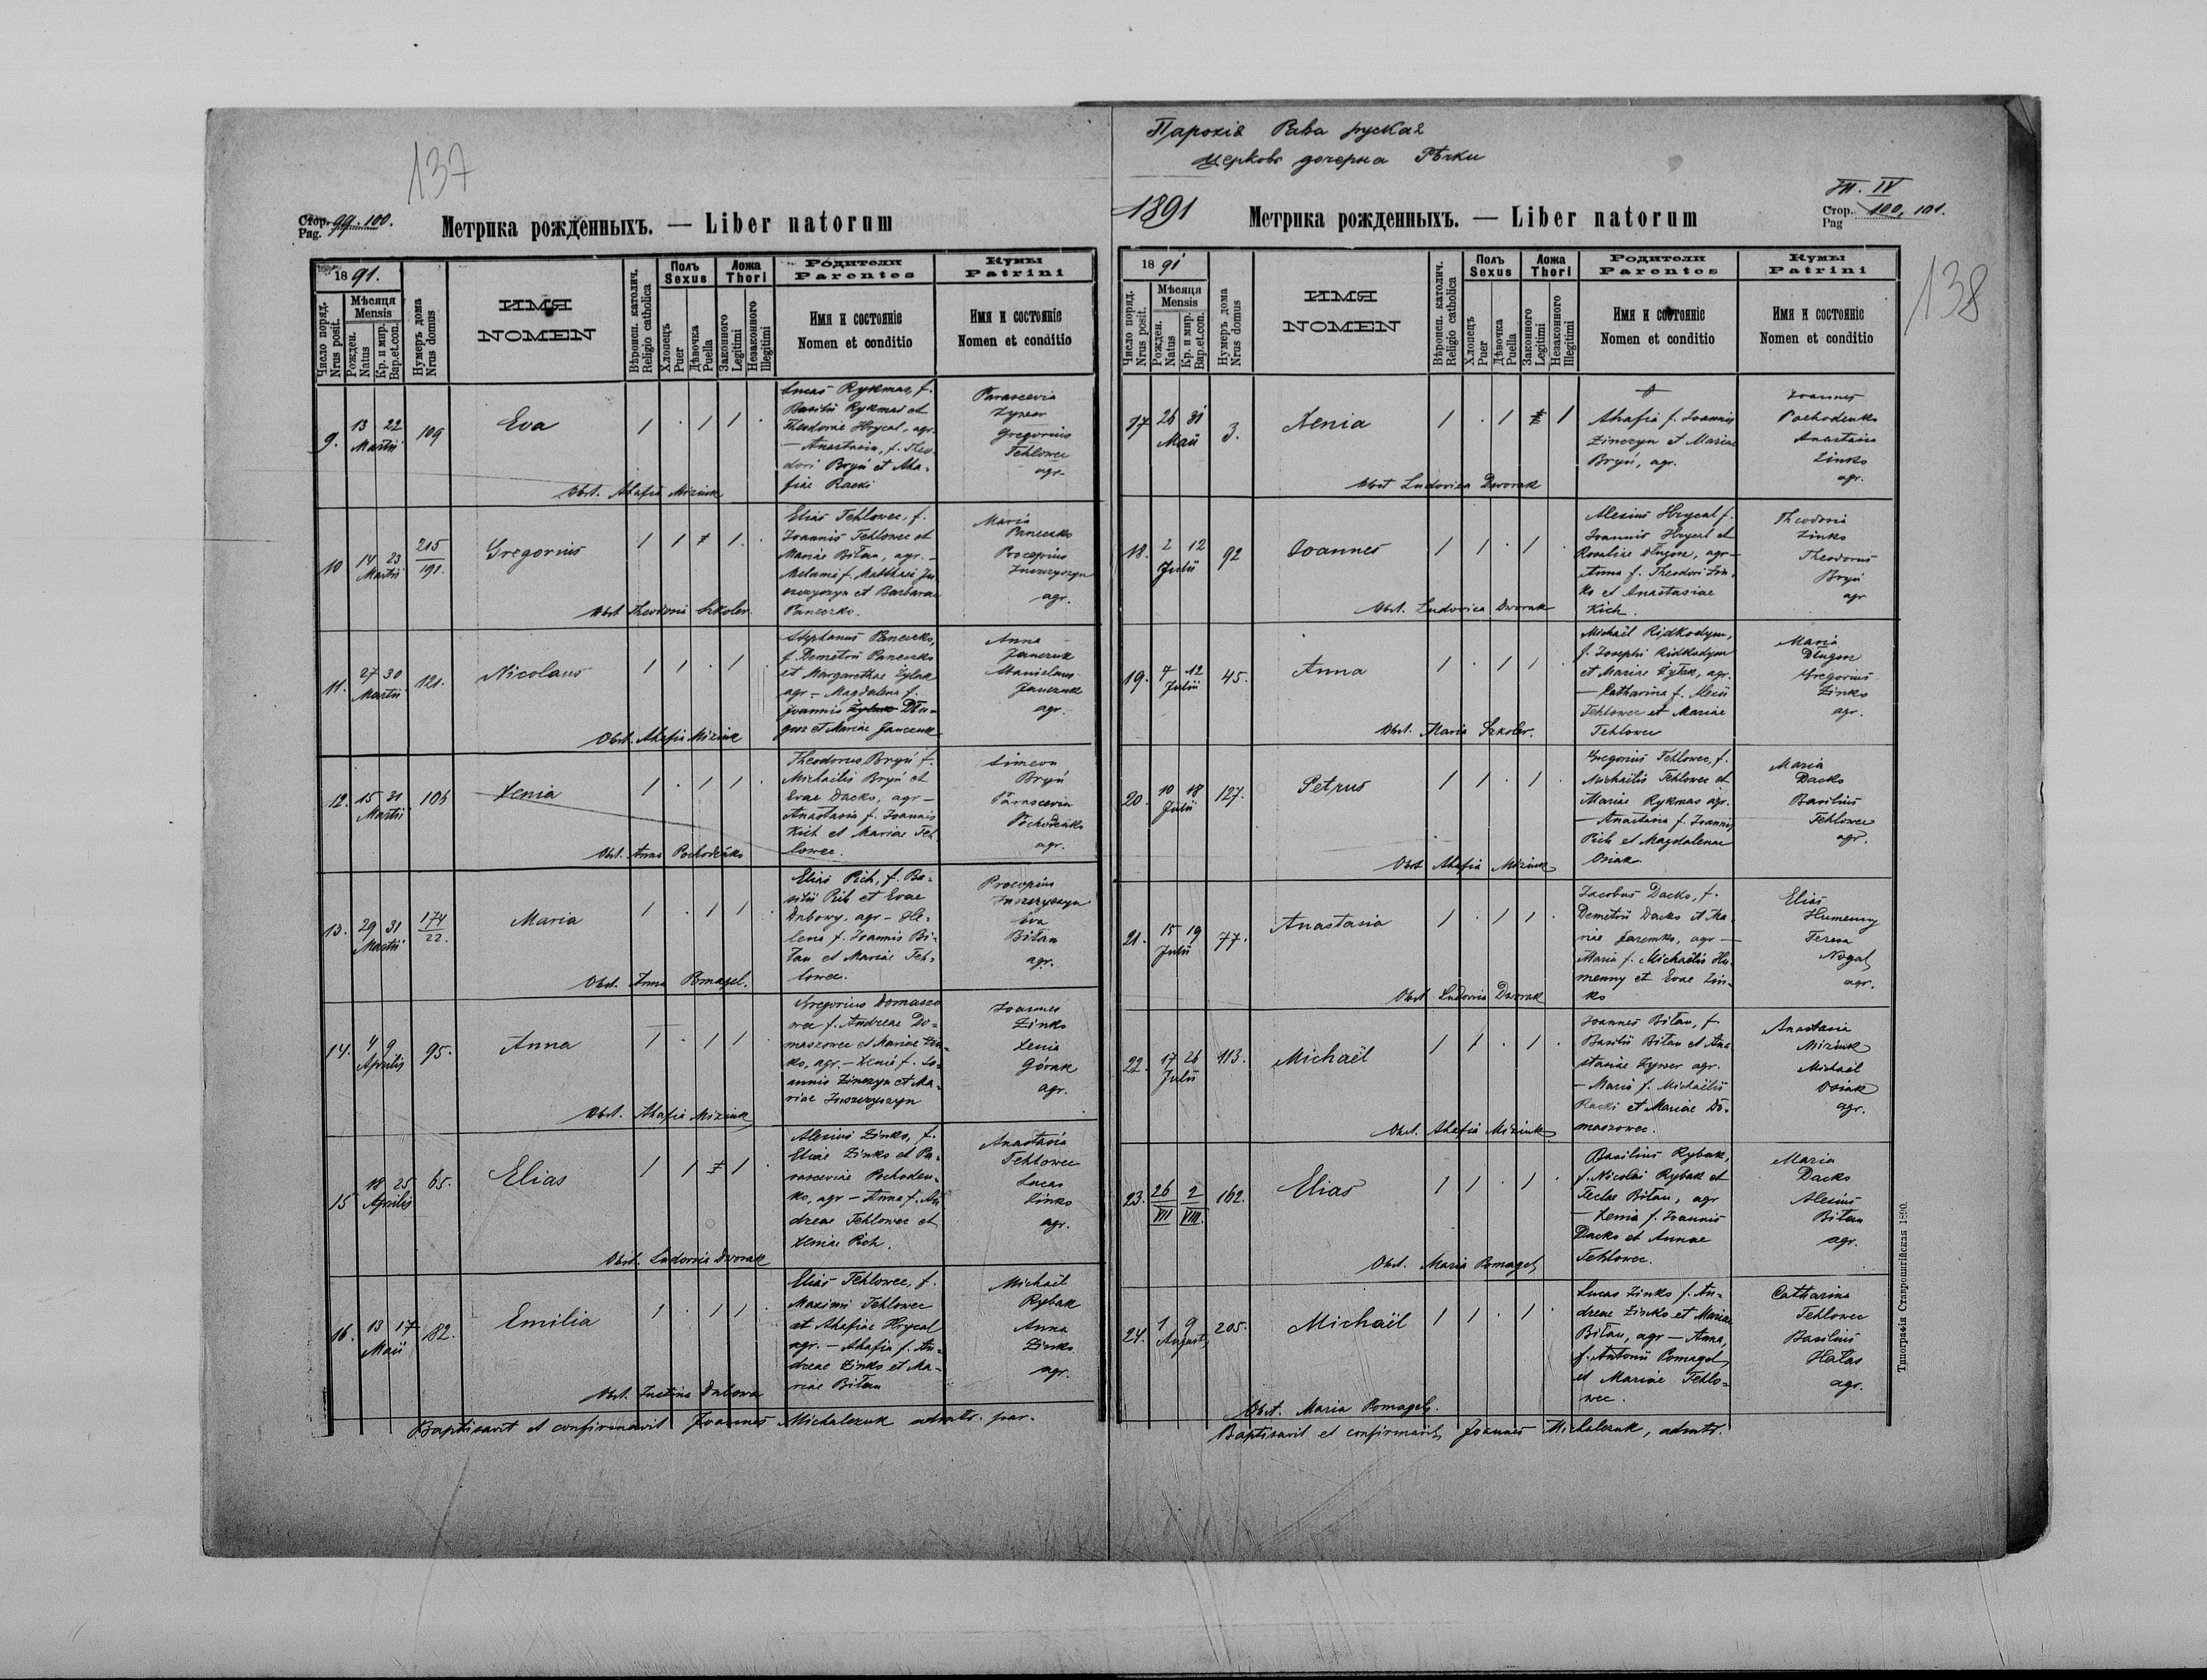 137
Стор. 99. 100.
Pag.
Метрика рожденныхъ. — Liber natorum
1891.
Число поряд.
Nrus posit.
Мѣсяця
Mensis
Рожден.
Natus
Кр. и мир.
Bap. et. con.
Нумеръ дома
Nrus domus
ИМЯ
NOMEN
Вѣроисп. католич.
Religio catholica
Полъ
Sexus
Хлопецъ
Puer
Дѣвочка
Puella
Ложа
Thori
Законного
Legitimi
Незаконного
Illegitimi
Родители
Parentes
Имя и состояніе
Nomen et conditio
Кумы
Patrini
Имя и состояніе
Nomen et conditio
9. 13 22 Martii 109 Eva 1 · 1 1 ·
Lucas Rykmas, f.
Basilii Rykmas et
Theodorae Hrycal, agr.
— Anastasia, f. Theo-
dori Bryń et Aha-
fiae Racki
Parascevia
Zywer
Gregorius
Tehlowec
agr.
Obst. Ahafia Miziuk
10 14 23 Martii 215/191. Gregorius 1 1 1 ·
Elias Tehlowec, f.
Joannis Tehlowec et
Mariae Biłan, agr. —
Melania f. Matthaei Ju-
szczyszyn et Barbarae
Paneczko.
Maria
Paneczko
Procopius
Juszczyszyn
agr.
Obst. Theodora Szkoler.
11. 27 30 Martii 121. Nicolaus 1 1 · 1 ·
Stephanus Paneczko,
f. Demetrii Paneczko
et Margarethae Żyłak
agr. — Magdalena f.
Joannis Dłu-
gosz et Mariae Janczuk
Anna
Janczuk
Stanislaus
Janczuk
agr.
Obst. Ahafia Miziuk
12. 15 31 Martii 106 Xenia 1 · 1 1 ·
Theodorus Bryń f.
Michaelis Bryń et
Evae Dacko, agr —
Anastasia f. Joannis
Kich et Mariae Teh
lowec.
Simeon
Bryń
Parascevia
Pochodeńko
agr.
Obst. Anna Pochodeńko
13. 29 31 Martii 174/22. Maria 1 · 1 1 ·
Elias Pich, f. Ba-
silii Pich et Evae
Dubowy, agr — He-
lena f. Joannis Bi-
łan et Mariae Teh-
lowec.
Procopius
Juszczyszyn
Eva
Biłan
agr.
Obst. Anna Pomagel.
14. 4 9 Aprilis 95. Anna 1 · 1 1 ·
Gregorius Domaszo
wec f. Andreae Do-
maszowec et Mariae Zin-
ko, agr. — Xenia f. Jo-
annis Zinczyn et Ma-
riae Juszczyszyn
Joannes
Zinko
Xenia
Górak
agr.
Obst. Ahafia Miziuk
15 18 25 Aprilis 65. Elias 1 1 1 ·
Alexius Zinko, f.
Eliae Zinko et Pa-
rasceviae Pochoden-
ko, agr — Anna f. An
dreae Tehlowec et
Xeniae Pich.
Anastasia
Tehlowec
Lucas
Zinko
agr.
Obst. Ludovica Dworak
16. 13 17 Maii 182. Emilia 1 · 1 1 ·
Elias Tehlowec, f.
Maximi Tehlowec
et Ahafiae Hrycal
agr. — Ahafia f. An-
dreae Zinko et Ma-
riae Biłan
Michaël
Rybak
Anna
Zinko
agr.
Obst. Justina Dubowa
Baptisavit et confirmavit Joannes Michalczuk admtr. par.
Парохія Рава руская
церковь дочерна Рѣчки
1891
Метрика рожденныхъ. — Liber natorum
III. IV
Стор. 100, 101.
Pag
138
1891
Число поряд.
Nrus posit.
Мѣсяця
Mensis
Рожден.
Natus
Кр. и мир.
Bap. et. con.
Нумеръ дома
Nrus domus
ИМЯ
NOMEN
Вѣроисп. католич.
Religio catholica
Полъ
Sexus
Хлопецъ
Puer
Дѣвочка
Puella
Ложа
Thori
Законного
Legitimi
Незаконного
Illegitimi
Родители
Parentes
Имя и состояніе
Nomen et conditio
Кумы
Patrini
Имя и состояніе
Nomen et conditio
17 26 31 Maii 3. Xenia 1 · 1 1
Ahafia f. Joannis
Zinczyn et Mariae
Bryń, agr.
Joannes
Pochodenko
Anastasia
Zinko
agr.
Obst Ludovica Dworak
18. 2 12 Julii 92 Joannes 1 1 · 1 ·
Alexius Hrycal f.
Joannis Hrycal et
Rosaliae Długosz, agr —
Anna f. Theodori Zin-
ko et Anastasiae
Kich.
Theodosia
Zinko
Theodorus
Bryń
agr
Obst. Ludovica Dworak
19. 7 12 Julii 45. Anna 1 · 1 1 ·
Michaël Ridkodym,
f. Josephi Ridkodym
et Mariae Żyłak, agr.
— Catharina f. Alexii
Tehlowec et Mariae
Tehlowec
Maria
Długosz
Gregorius
Zinko
agr.
Obst. Maria Szkoler.
20. 10 18 Julii 127. Petrus 1 1 · 1 ·
Gregorius Tehlowec, f.
Michaëlis Tehlowec et
Mariae Rykmas agr.
— Anastasia f. Joannis
Pich et Magdalenae
Osiak
Maria
Dacko
Basilius
Tehlowec
agr.
Obst Ahafia Miziuk
21. 15 19 Julii 77. Anastasia 1 · 1 1 ·
Jacobus Dacko, f.
Demetrii Dacko et Ma-
riae Jaremko, agr —
Maria f. Michaëlis Hu-
menny et Evae Zin-
ko
Elias
Humenny
Teresa
Nogal
agr.
Obst Ludovica Dworak
22. 17 26 Julii 113. Michaël 1 1 · 1 ·
Joannes Biłan, f.
Basilii Biłan et Ana
stasiae Zywer agr.
— Maria f. Michaëlis
Racki et Mariae Do-
maszowec.
Anastasia
Miziuk
Michaël
Osiak
agr.
Obst. Ahafia Miziuk
23. 26/VII 2/VIII. 162. Elias 1 1 · 1 ·
Basilius Rybak,
f. Nicolai Rybak et
Teclae Biłan, agr
— Xenia f. Joannis
Dacko et Annae
Tehlowec.
Maria
Dacko
Alexius
Biłan
agr.
Obst. Maria Pomagel
24. 1 9 Augusti 205. Michaël 1 1 · 1 ·
Lucas Zinko f. An-
dreae Zinko et Mariae
Biłan, agr — Anna,
f. Antonii Pomagel
et Mariae Tehlo-
wec.
Catharina
Tehlowec
Basilius
Hałas
agr.
Obst. Maria Pomagel.
Baptisavit et confirmavit Joannes Michalczuk, admtr.
Типографія Ставропигійская 1890.